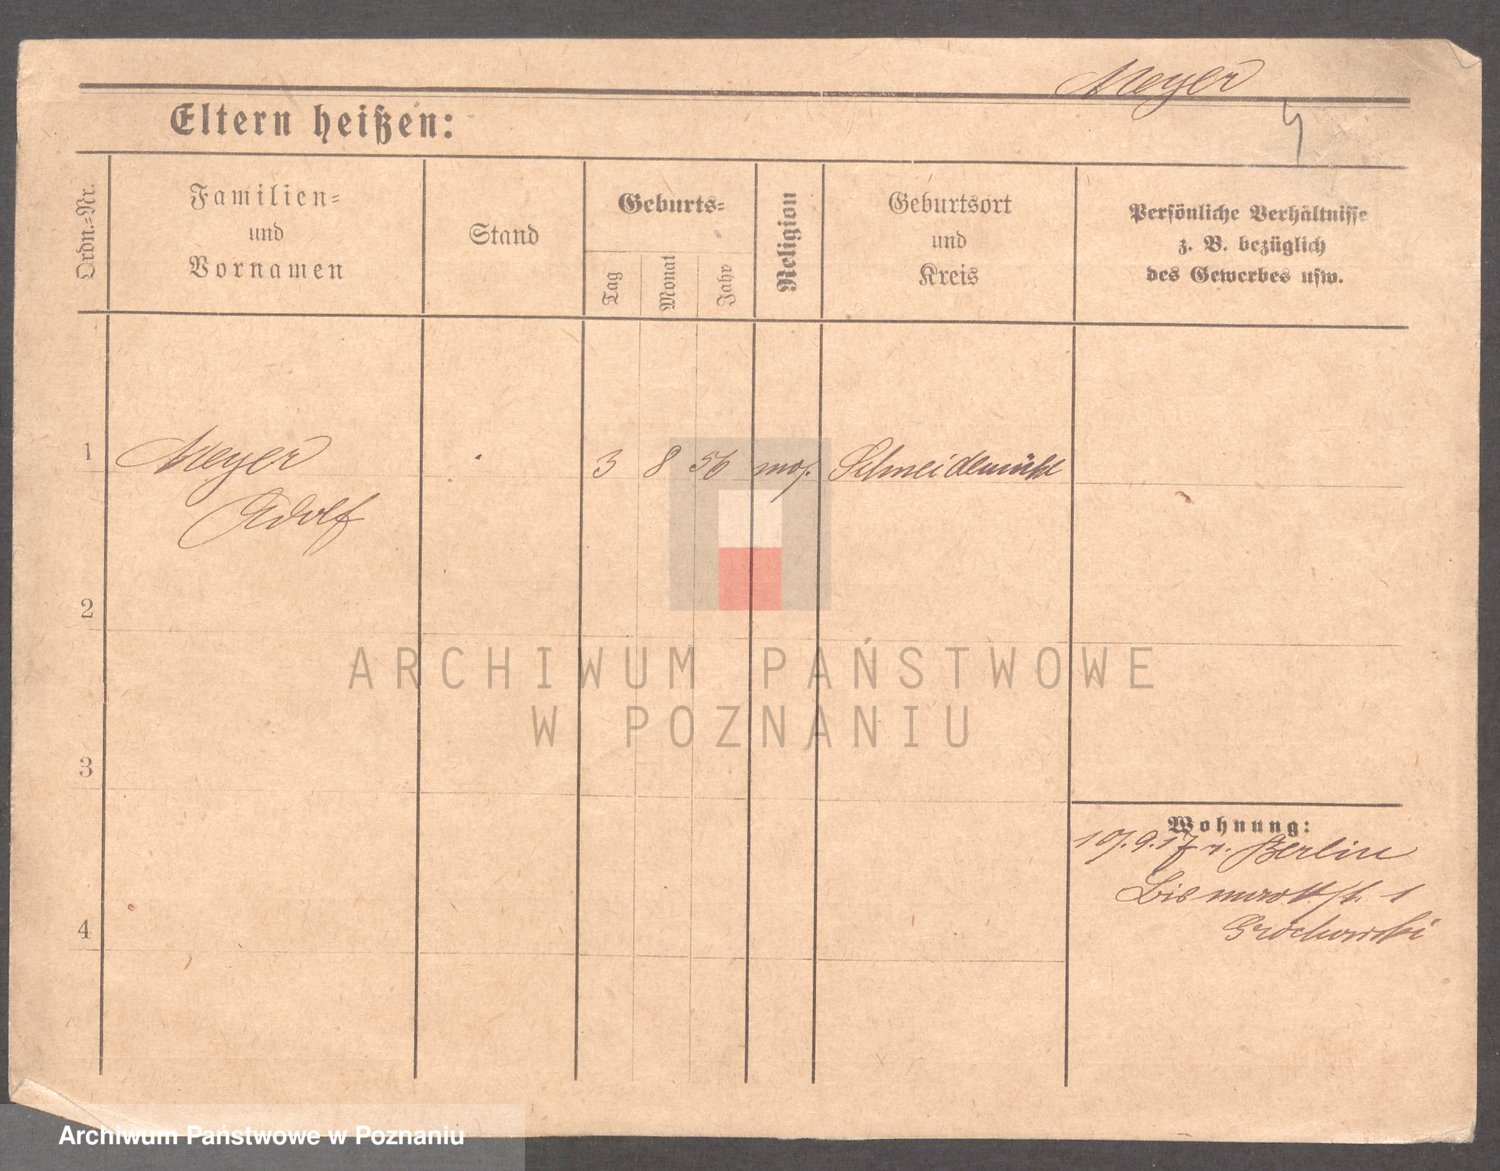 Meyer
Eltern heißen:
Ordn.-Nr.
Familien-
und
Vornamen
Stand
Geburts-
Tag
Monat
Jahr
Religion
Geburtsort
und
Kreis
Persönliche Verhältnisse
z. B. bezüglich
des Gewerbes usw.
1 Meyer 3 8 56 mos. Schneidemühl
Adolf
2
ARCHIWUM PAŃSTWOWE
W POZNANIU
3
Wohnung:
19.17 v. Berlin
Bismarckst. 1
Grochowski
4
Archiwum Państwowe w Poznaniu